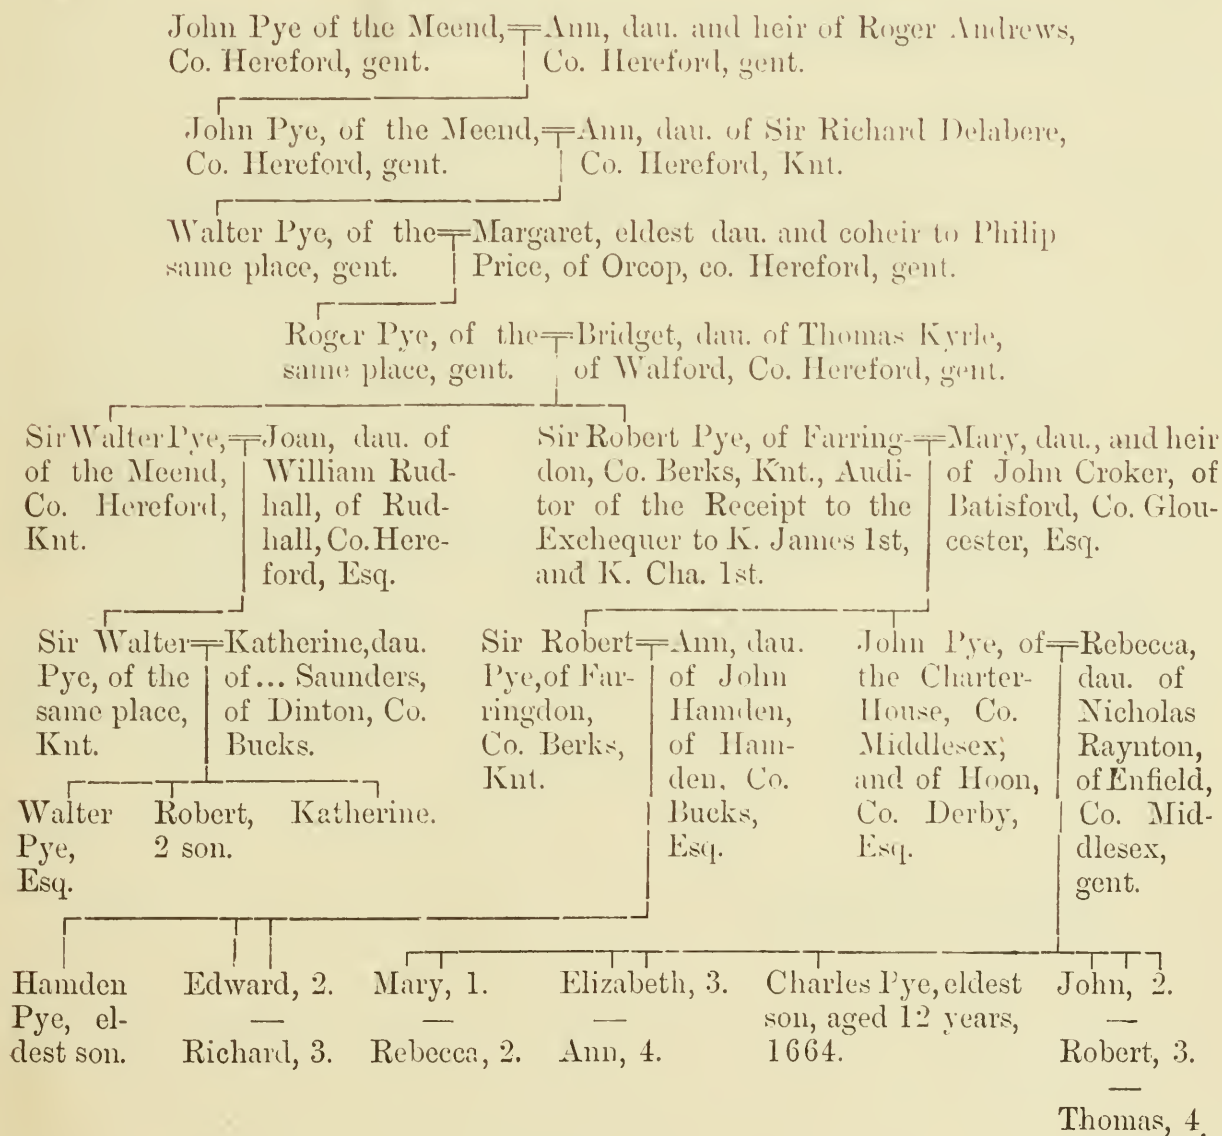 John Pye of the Meend,
Co. Hereford, gent.
Ann, dau. and heir of Roger Andrews,
Co. Hereford, gent.
John Pye, of the Meend,
Co. Hereford, gent.
Ann, dau. of Sir Richard Delabere,
Co. Hereford, Knt.
Walter Pye, of the
same place, gent.
Margaret, eldest dau. and coheir to Philip
Price, of Orcop, co. Hereford, gent.
Roger Pye, of the
same place, gent.
Bridget, dau. of Thomas Kyrle,
of Walford, Co. Hereford, gent.
Sir Walter Pye,
of the Meend,
Co. Hereford,
Knt.
Joan, dau. of
William Rud-
hall, of Rud-
hall, Co. Here-
ford, Esq.
Sir Robert Pye, of Farring-
don, Co. Berks, Knt., Audi-
tor of the Receipt to the
Exchequer to K. James 1st,
and K. Cha. 1st.
Mary, dau., and heir
of John Croker, of
Batisford, Co. Glou-
cester, Esq.
Sir Walter
Pye, of the
same place,
Knt.
Katherine, dau.
of... Saunders,
of Dinton, Co.
Bucks.
Sir Robert
Pye, of Far-
ringdon,
Co. Berks,
Knt.
Ann, dau.
of John
Hamden,
of Ham-
den, Co.
Bucks,
Esq.
John Pye, of
the Charter-
House, Co.
Middlesex;
and of Hoon,
Co. Derby,
Esq.
Rebecca,
dau. of
Nicholas
Raynton,
of Enfield,
Co. Mid-
dlesex,
gent.
Walter
Pye,
Esq.
Robert,
2 son.
Katherine.
Hamden
Pye, el-
dest son.
Edward, 2.
—
Richard, 3.
Mary, 1.
—
Rebecca, 2.
Elizabeth, 3.
—
Ann, 4.
Charles Pye, eldest
son, aged 12 years,
1664.
John, 2.
—
Robert, 3.
—
Thomas, 4.